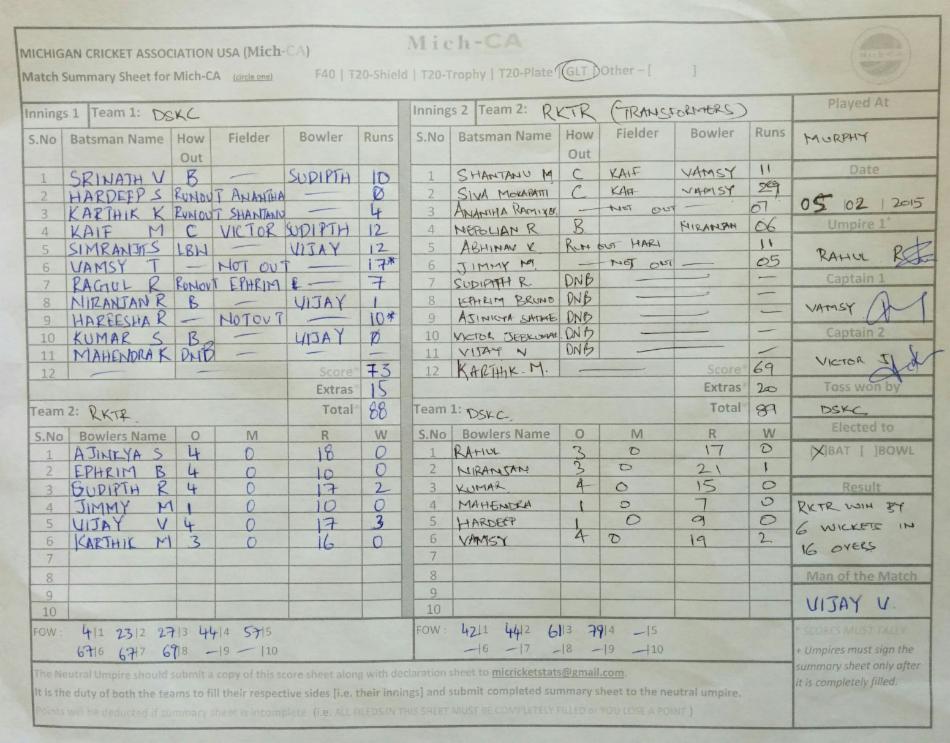 Mich-CA
MICHIGAN CRICKET ASSOCIATION USA (Mich-CA)
Match Summary Sheet for Mich-CA (circle one) F40 | T20-Shield | T20-Trophy | T20-Plate | GLT | Other – [ ]
Innings 1 Team 1: DSKC
S.No Batsman Name How Out Fielder Bowler Runs
1 SRINATH V B — SUDIPTH 10
2 HARDEEP S RUNOUT ANANTHA — 0
3 KARTHIK K RUNOUT SHANTANU 4
4 KAIF M C VICTOR SUDIPTH 12
5 SIMRANJIT S LBW — VIJAY 12
6 VAMSY T — NOT OUT — 17*
7 RAGUL R RUNOUT EPHRIM — 7
8 NIRANJAN R B — VIJAY 1
9 HAREESHA R — NOTOUT — 10*
10 KUMAR S B VIJAY 0
11 MAHENDRA K DNB — — —
12 — — Score* 73
Extras* 15
Total* 88
Team 2: RKTR
S.No Bowlers Name O M R W
1 AJINKYA S 4 0 18 0
2 EPHRIM B 4 0 10 0
3 SUDIPTH R 4 0 17 2
4 JIMMY M 1 0 10 0
5 VIJAY V 4 0 17 3
6 KARTHIK M 3 0 16 0
7
8
9
10
FOW : 4|1 23|2 27|3 44|4 57|5
67|6 67|7 69|8 —|9 —|10
Innings 2 Team 2: RKTR (TRANSFORMERS)
S.No Batsman Name How Out Fielder Bowler Runs
1 SHANTANU M C KAIF VAMSY 11
2 SIVA C KAIF VAMSY 29
3 ANANTHA — NOT OUT — 07
4 NEPOLIAN R B NIRANJAN 06
5 ABHINAV K RUN OUT HARI 11
6 JIMMY M. — NOT OUT — 05
7 SUDIPTH R. DNB — — —
8 EPHRIM BRUNO DNB — — —
9 AJINKYA SATHE DNB — — —
10 VICTOR DNB — — —
11 VIJAY V DNB — — —
12 KARTHIK. M. — Score* 69
Extras* 20
Total* 89
Team 1: DSKC
S.No Bowlers Name O M R W
1 RAHUL 3 0 17 0
2 NIRANJAN 3 0 21 1
3 KUMAR 4 0 15 0
4 MAHENDRA 1 0 7 0
5 HARDEEP 1 0 9 0
6 VAMSY 4 0 19 2
7
8
9
10
FOW : 42|1 44|2 61|3 79|4 —|5
—|6 —|7 —|8 —|9 —|10
Played At
MURPHY
Date
05 | 02 | 2015
Umpire 1*
RAHUL R
Captain 1
VAMSY
Captain 2
VICTOR J
Toss won by
DSKC
Elected to
[X]BAT [ ]BOWL
Result
RKTR WIN BY
6 WICKETS IN
16 OVERS
Man of the Match
VIJAY V.
* SCORES MUST TALLY
+ Umpires must sign the
summary sheet only after
it is completely filled.
The Neutral Umpire should submit a copy of this score sheet along with declaration sheet to micricketstats@gmail.com.
It is the duty of both the teams to fill their respective sides [i.e. their innings] and submit completed summary sheet to the neutral umpire.
Points will be deducted if summary sheet is incomplete (i.e. ALL FILEDS IN THIS SHEET MUST BE COMPLETELY FILLED or YOU LOSE A POINT )